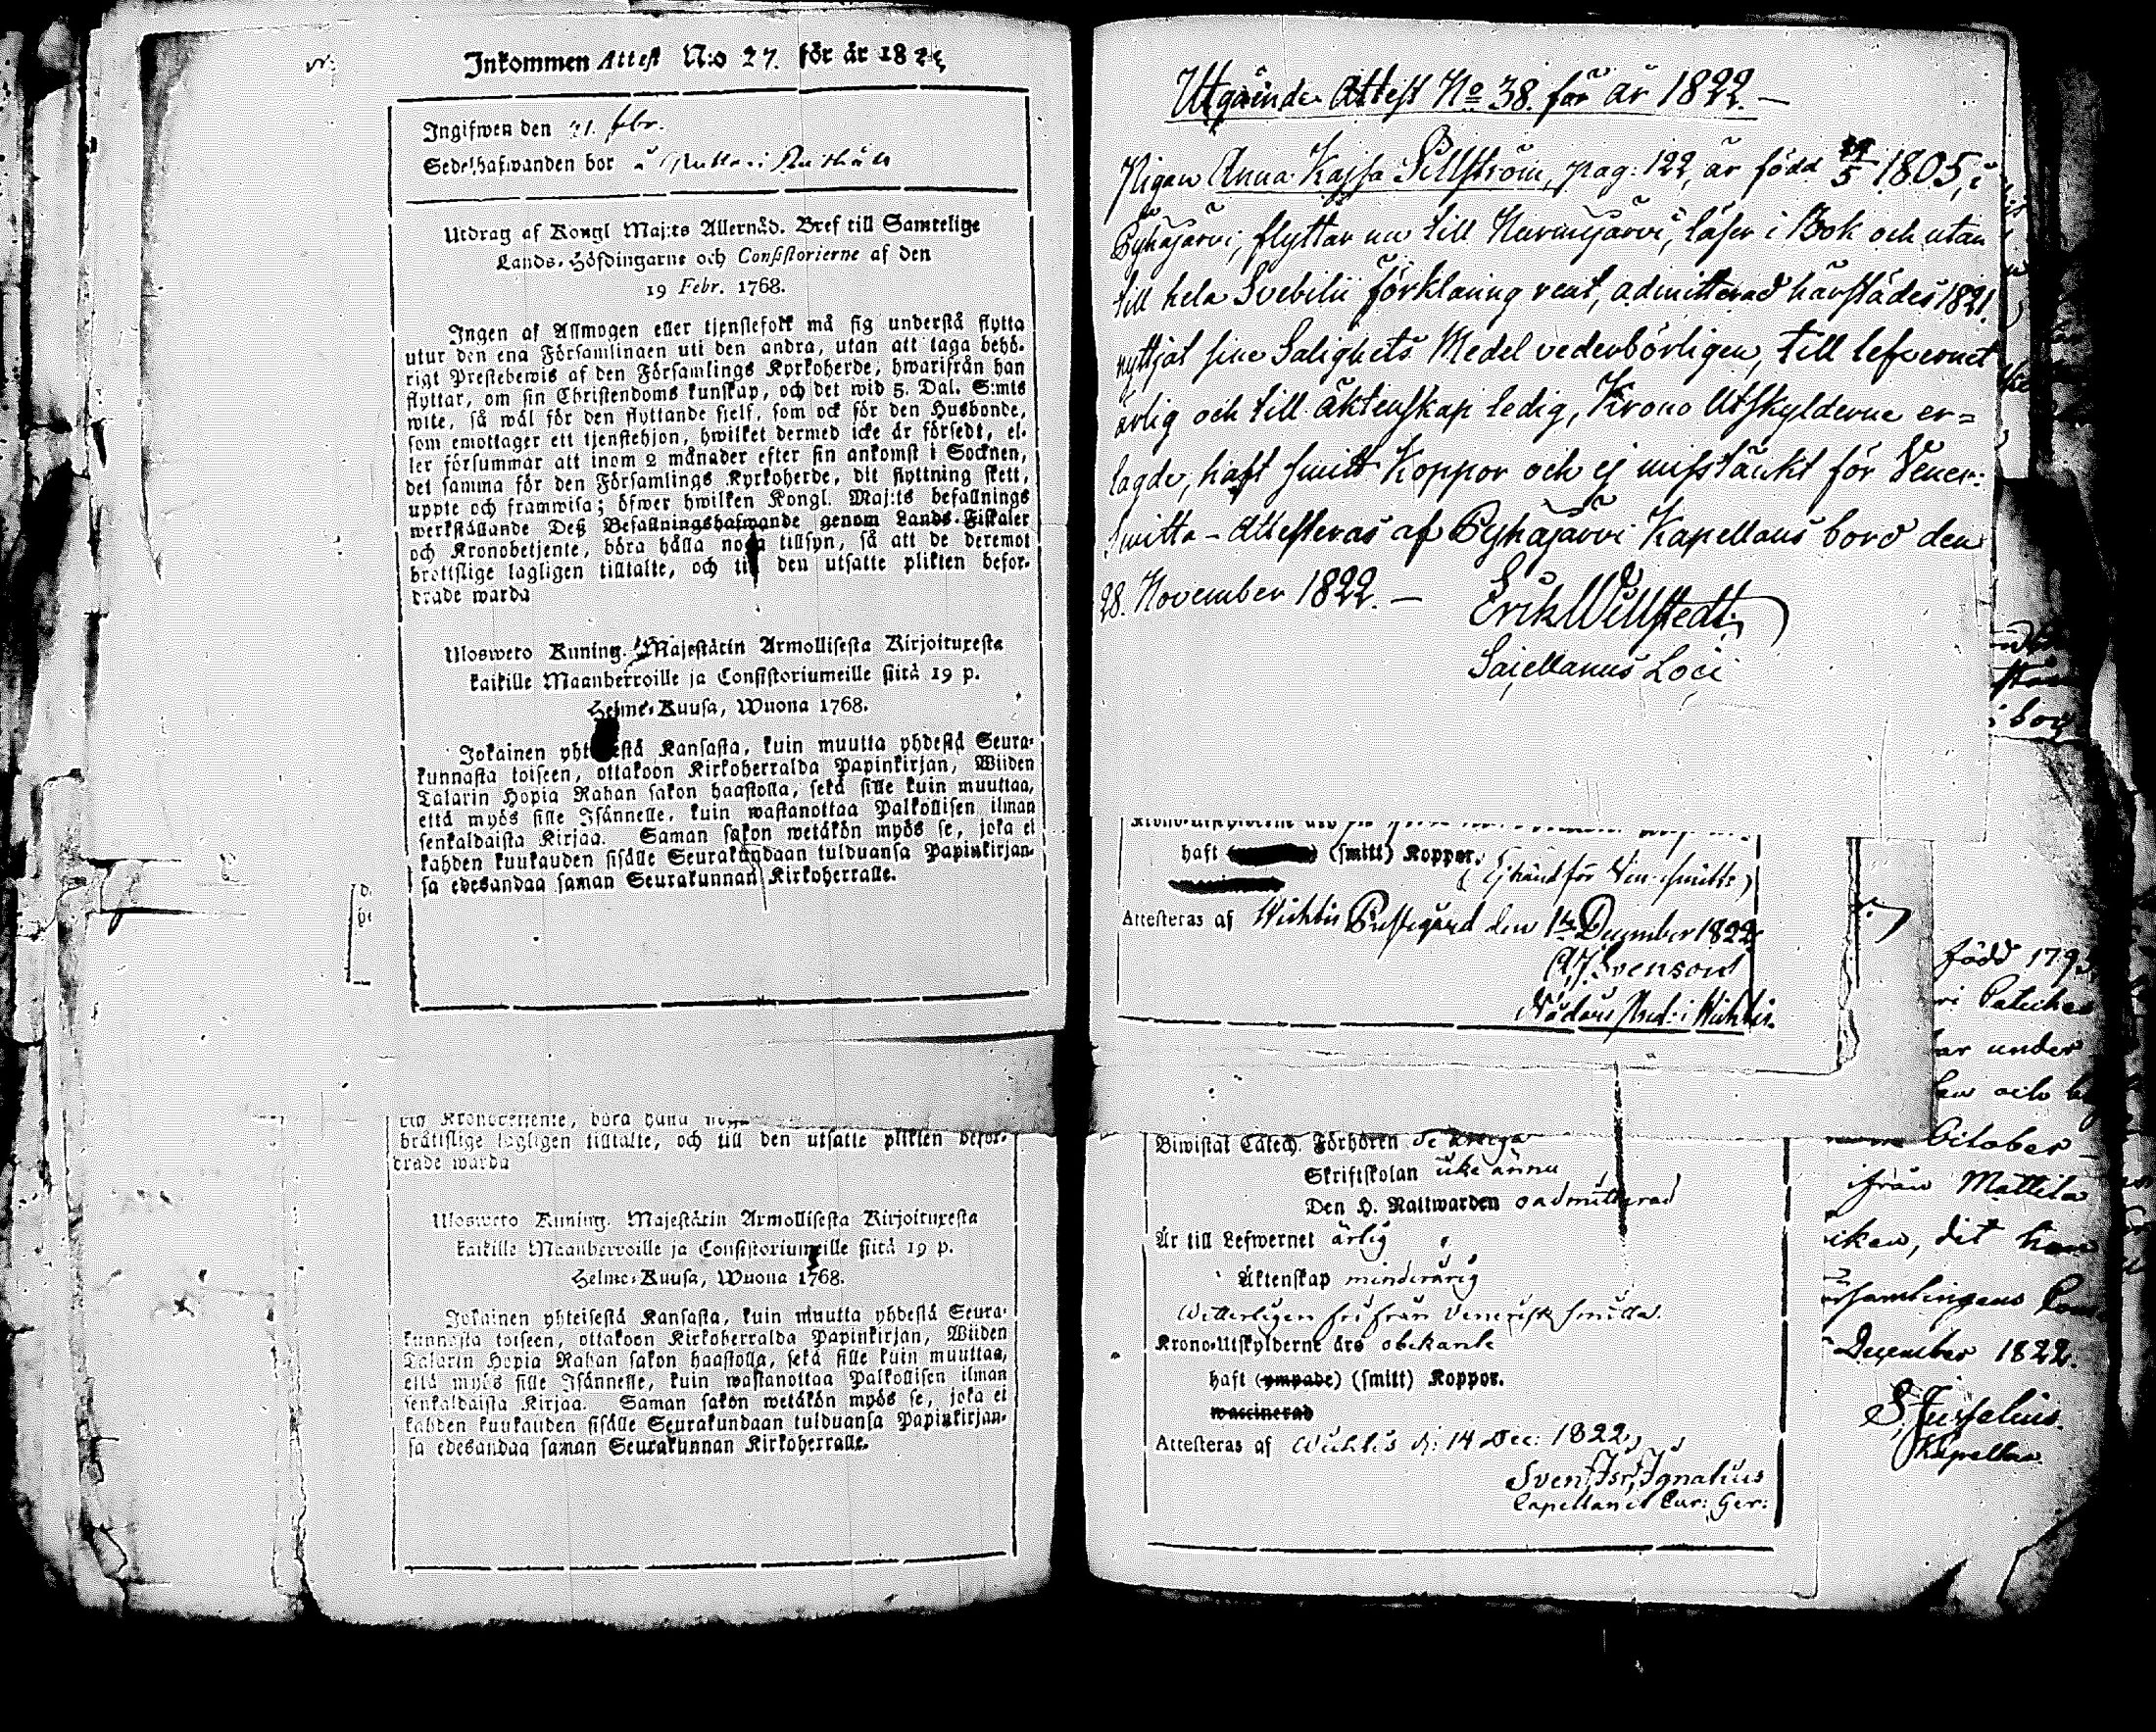 Inkommen Attest N:o 27. för år 18
Ingifwen den 21. febr.
Sedelhafwanden bor å
Utdrag af Kongl Maj:ts Allernåd. Bref till Samtelige
Lands-Höfdingarne och Consistorierne af den
19 Febr. 1768.
Ingen af Allmogen eller tjenstefolk må sig understå flytta
utur den ena Församlingen uti den andra, utan att taga behö-
rigt Prestebewis af den Församlings Kyrkoherde, hwarifrån han
flyttar, om sin Christendoms kunskap, och det wid 5. Dal. S:mts
wite, så wäl för den flyttande sielf, som ock för den Husbonde,
som emottager ett tjenstehjon, hwilket dermed icke är försedt, el-
ler försummar att inom 2 månader efter sin ankomst i Socknen,
det samma för den Församlings Kyrkoherde, dit flyttning skett,
uppte och framwisa; öfwer hwilken Kongl. Maj:ts befallnings
werkställande Deß Befallningshafwande genom Lands-Fiskaler
och Kronobetjente, böra hålla noga tillsyn, så att de deremot
brottslige lagligen tilltalte, och till den utsatte plikten befor-
drade warda
Ulosweto Kuning. Majestätin Armollisesta Kirjoituxesta
kaikille Maanherroille ja Consistoriumeille siitä 19 p.
Helme-Kuusa, Wuona 1768.
Jokainen yhteisestä Kansasta, kuin muutta yhdestä Seura-
kunnasta toiseen, ottakoon Kirkoherralda Papinkirjan, Wiiden
Talarin Hopia Rahan sakon haastolla, sekä sille kuin muuttaa,
että myös sille Isännelle, kuin wastanottaa Palkollisen ilman
senkaldaista Kirjaa. Saman sakon wetäkön myös se, joka ei
kahden kuukauden sisälle Seurakundaan tulduansa Papinkirjan-
sa edesandaa saman Seurakunnan Kirkoherralle.
brättslige lagligen tilltalte, och till den utsatte plikten befor-
drade warda
Ulosweto Kuning. Majestätin Armollisesta Kirjoituxesta
kaikille Maanherroille ja Consistoriumeille siitä 19 p.
Helme-Kuusa, Wuona 1768.
Jokainen yhteisestä Kansasta, kuin muutta yhdestä Seura-
kunnasta toiseen, ottakoon Kirkoherralda Papinkirjan, Wiiden
Talarin Hopia Rahan sakon haastolla, sekä sille kuin muuttaa,
että myös sille Isännelle, kuin wastanottaa Palkollisen ilman
senkaldaista Kirjaa. Saman sakon wetäkön myös se, joka ei
kahden kuukauden sisälle Seurakundaan tulduansa Papinkirjan-
sa edesandaa saman Seurakunnan Kirkoherralle.
Utgående Attest No 38. för år 1822.
Pigan Anna Kajsa Sillström, pag: 122, är född 5 1805, i
Pyhäjärvi, flyttar nu till Nurmijärvi, läser i Bok och utan
till hela Svebilii förklaring rent, admitterad härstädes 1821.
nyttjat sine Salighets Medel vederbörligen, till lefvernet
ärlig och till äktenskap ledig, Krono Utskylderne er=
lagde, haft smitt Koppor och ej misstänkt för Vener:
smitta - Attesteras af Pyhäjärvi Kapellans bord den
28. November 1822.
Erik Willstedt
Sacellanus Loci
haft (smitt) Koppor.
(Ej känd för Ven. smitta)
Attesteras af Wichtis Prestegård den 1 December 1822
A.J. Svenson
Nådårs Pred: i Wichtis.
Biwistat Catech. Förhören
Skriftskolan icke ännu
Den H. Nattwarden oadmitterad
Är till Lefwernet ärlig
Äktenskap minderårig
Witterligen fri från Venerisk smitta.
Krono-Utskylderne äro obekante
haft (ympade) (smitt) Koppor.
waccinerad
Attesteras af Wichtis d: 14 Dec: 1822
Sven Isr: Ignatius
Capellan et Cur: Ger:
född 1793
under
och
October
ifrån Mattila
dit han
församlingens
December 1822.
Kapellan